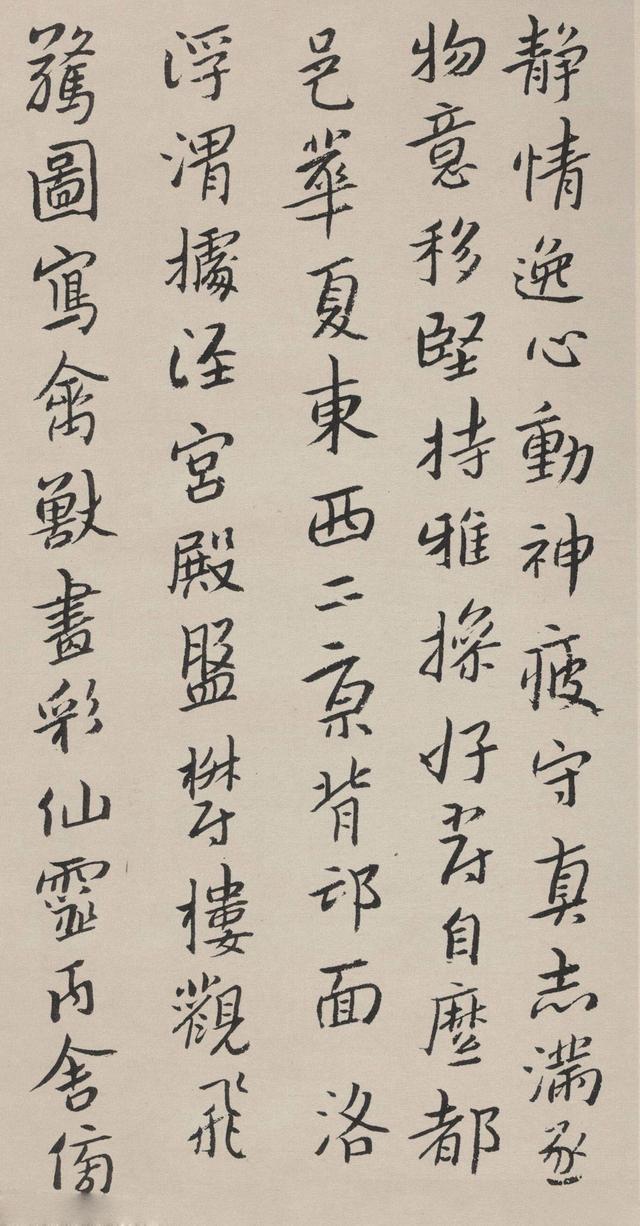 静情逸心動神疲守真志滿逐
物意移堅持雅操好爵自縻都
邑華夏東西二京背邙面洛
浮渭據涇宮殿盤欝樓觀飛
驚圖寫禽獸畫彩仙靈丙舍傍